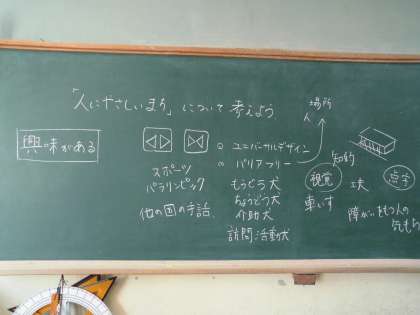 「人にやさしいまち」について考えよう
興味がある
スポーツ
パラリンピック
他の国の手話
ユニバーサルデザイン
バリアフリー
もうどう犬
ちょうどう犬
介助犬
訪問活動犬
場所
人
知的
視覚
車いす
工夫
点字
障がいをもつ人の
気もち